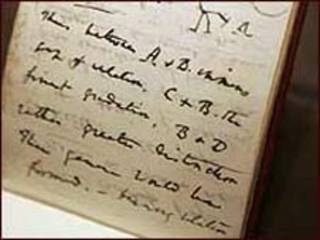 Thus between A & B. immense
gap of relation, C & B. the
finest gradation, B & D
rather greater distinction
Thus genera would be
formed. — bearing relation